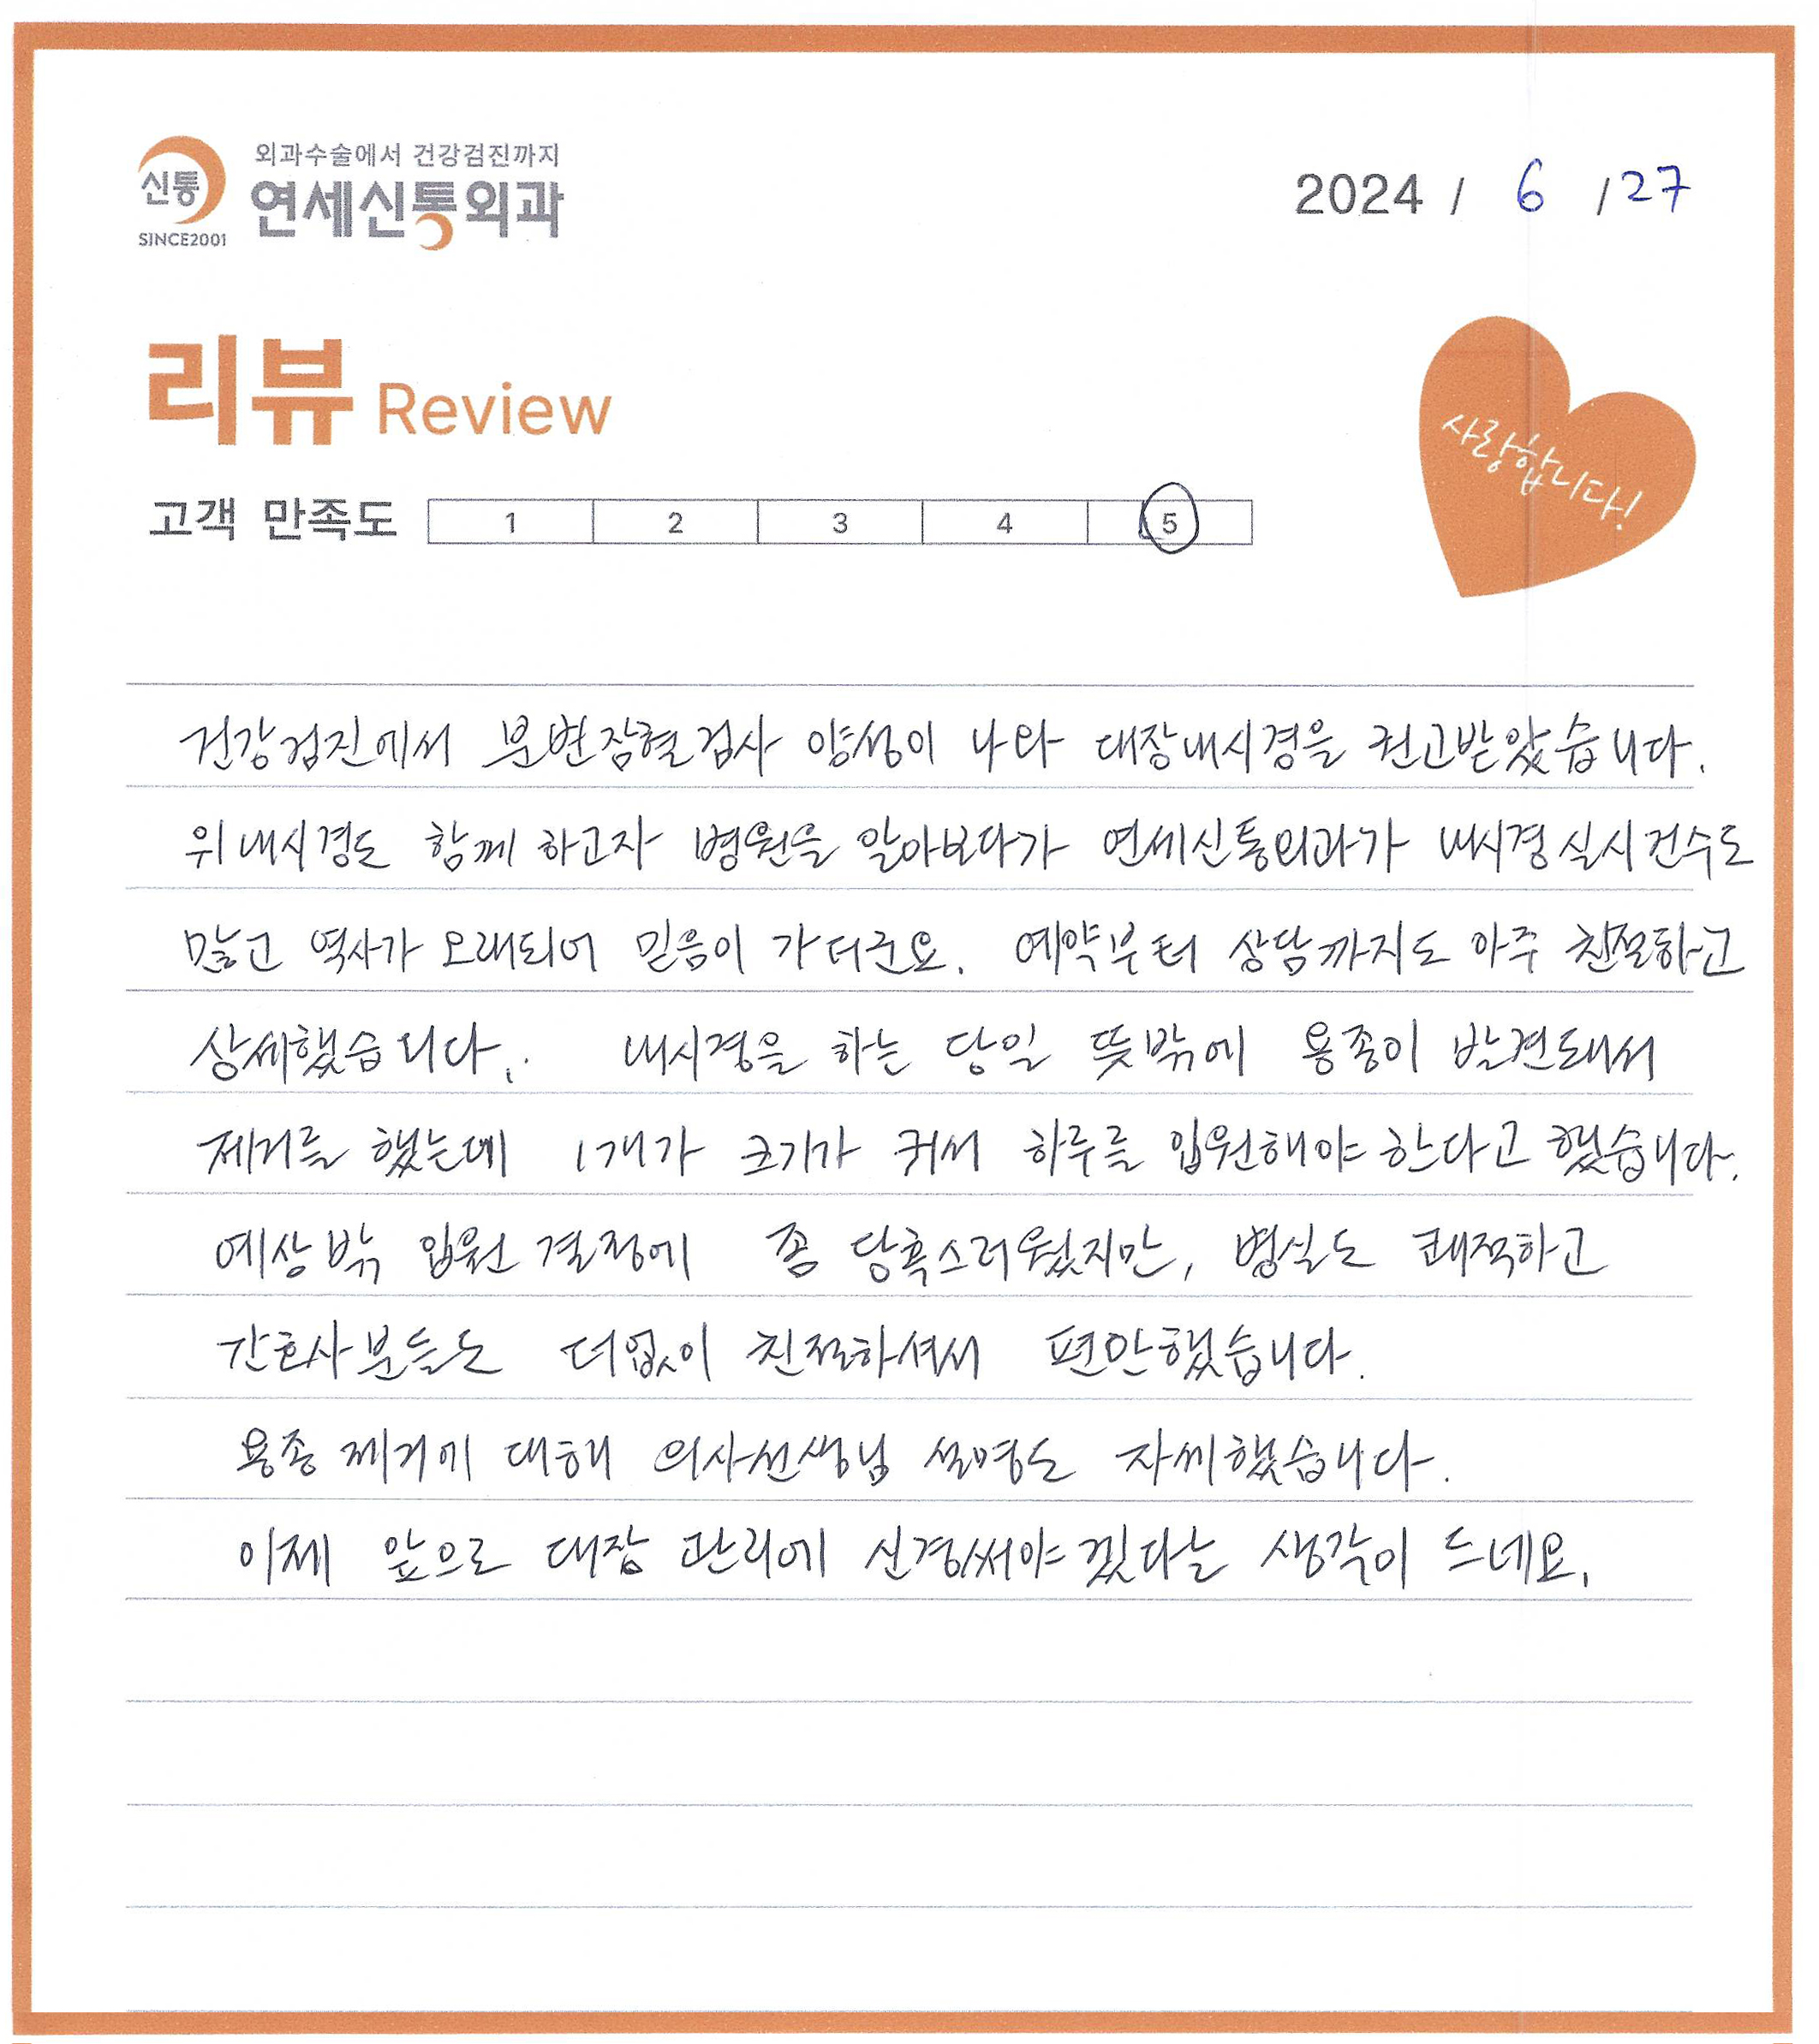 신통
SINCE2001
외과수술에서 건강검진까지
연세신통외과
2024 / 6 / 27
리뷰 Review
사랑합니다!
고객 만족도 1 2 3 4 5
건강검진에서 분변잠혈검사 양성이 나와 대장내시경을 권고받았습니다.
위내시경도 함께 하고자 병원을 알아보다가 연세신통외과가 내시경실시건수도
많고 역사가 오래되어 믿음이 가더군요. 예약부터 상담까지도 아주 친절하고
상세했습니다. 내시경을 하는 당일 뜻밖에 용종이 발견돼서
제거를 했는데 1개가 크기가 커서 하루를 입원해야 한다고 했습니다.
예상밖 입원 결정에 좀 당혹스러웠지만, 병실도 쾌적하고
간호사분들도 더없이 친절하셔서 편안했습니다.
용종 제거에 대해 의사선생님 설명도 자세했습니다.
이제 앞으로 대장 관리에 신경써야겠다는 생각이 드네요.